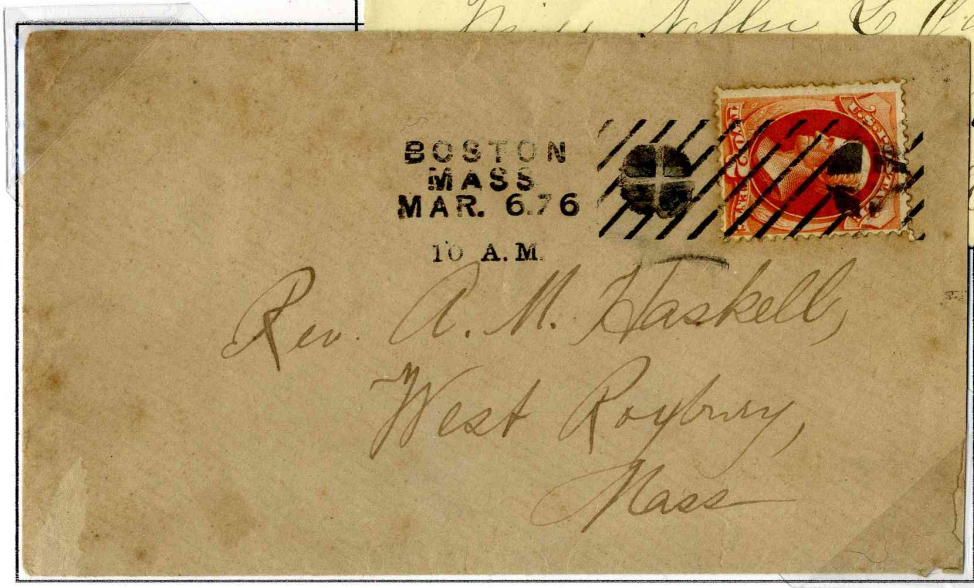 Nellie L
BOSTON
MASS
MAR. 6.76
10 A.M.
Rev. A. M. Haskell,
West Roxbury,
Mass